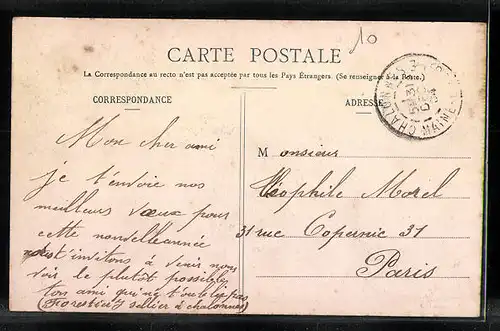 10
CARTE POSTALE
La Correspondance au recto n'est pas acceptée par tous les Pays Étrangers. (Se renseigner à la Poste.)
CORRESPONDANCE
ADRESSE
CHALONNES
MAINE
Mon cher ami
je t'envoie nos
meilleurs vœux pour
cette nouvelle année
invitons à venir nous
voir le plutôt possible
ton ami qui ne t'oublie pas
(Forestier sellier à chalonnes)
Monsieur
Théophile Morel
31 rue Copernic 31
Paris